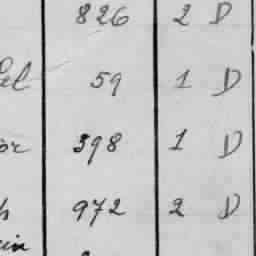 826 2 D
el 59 1 D
or 398 1 D
972 2 D